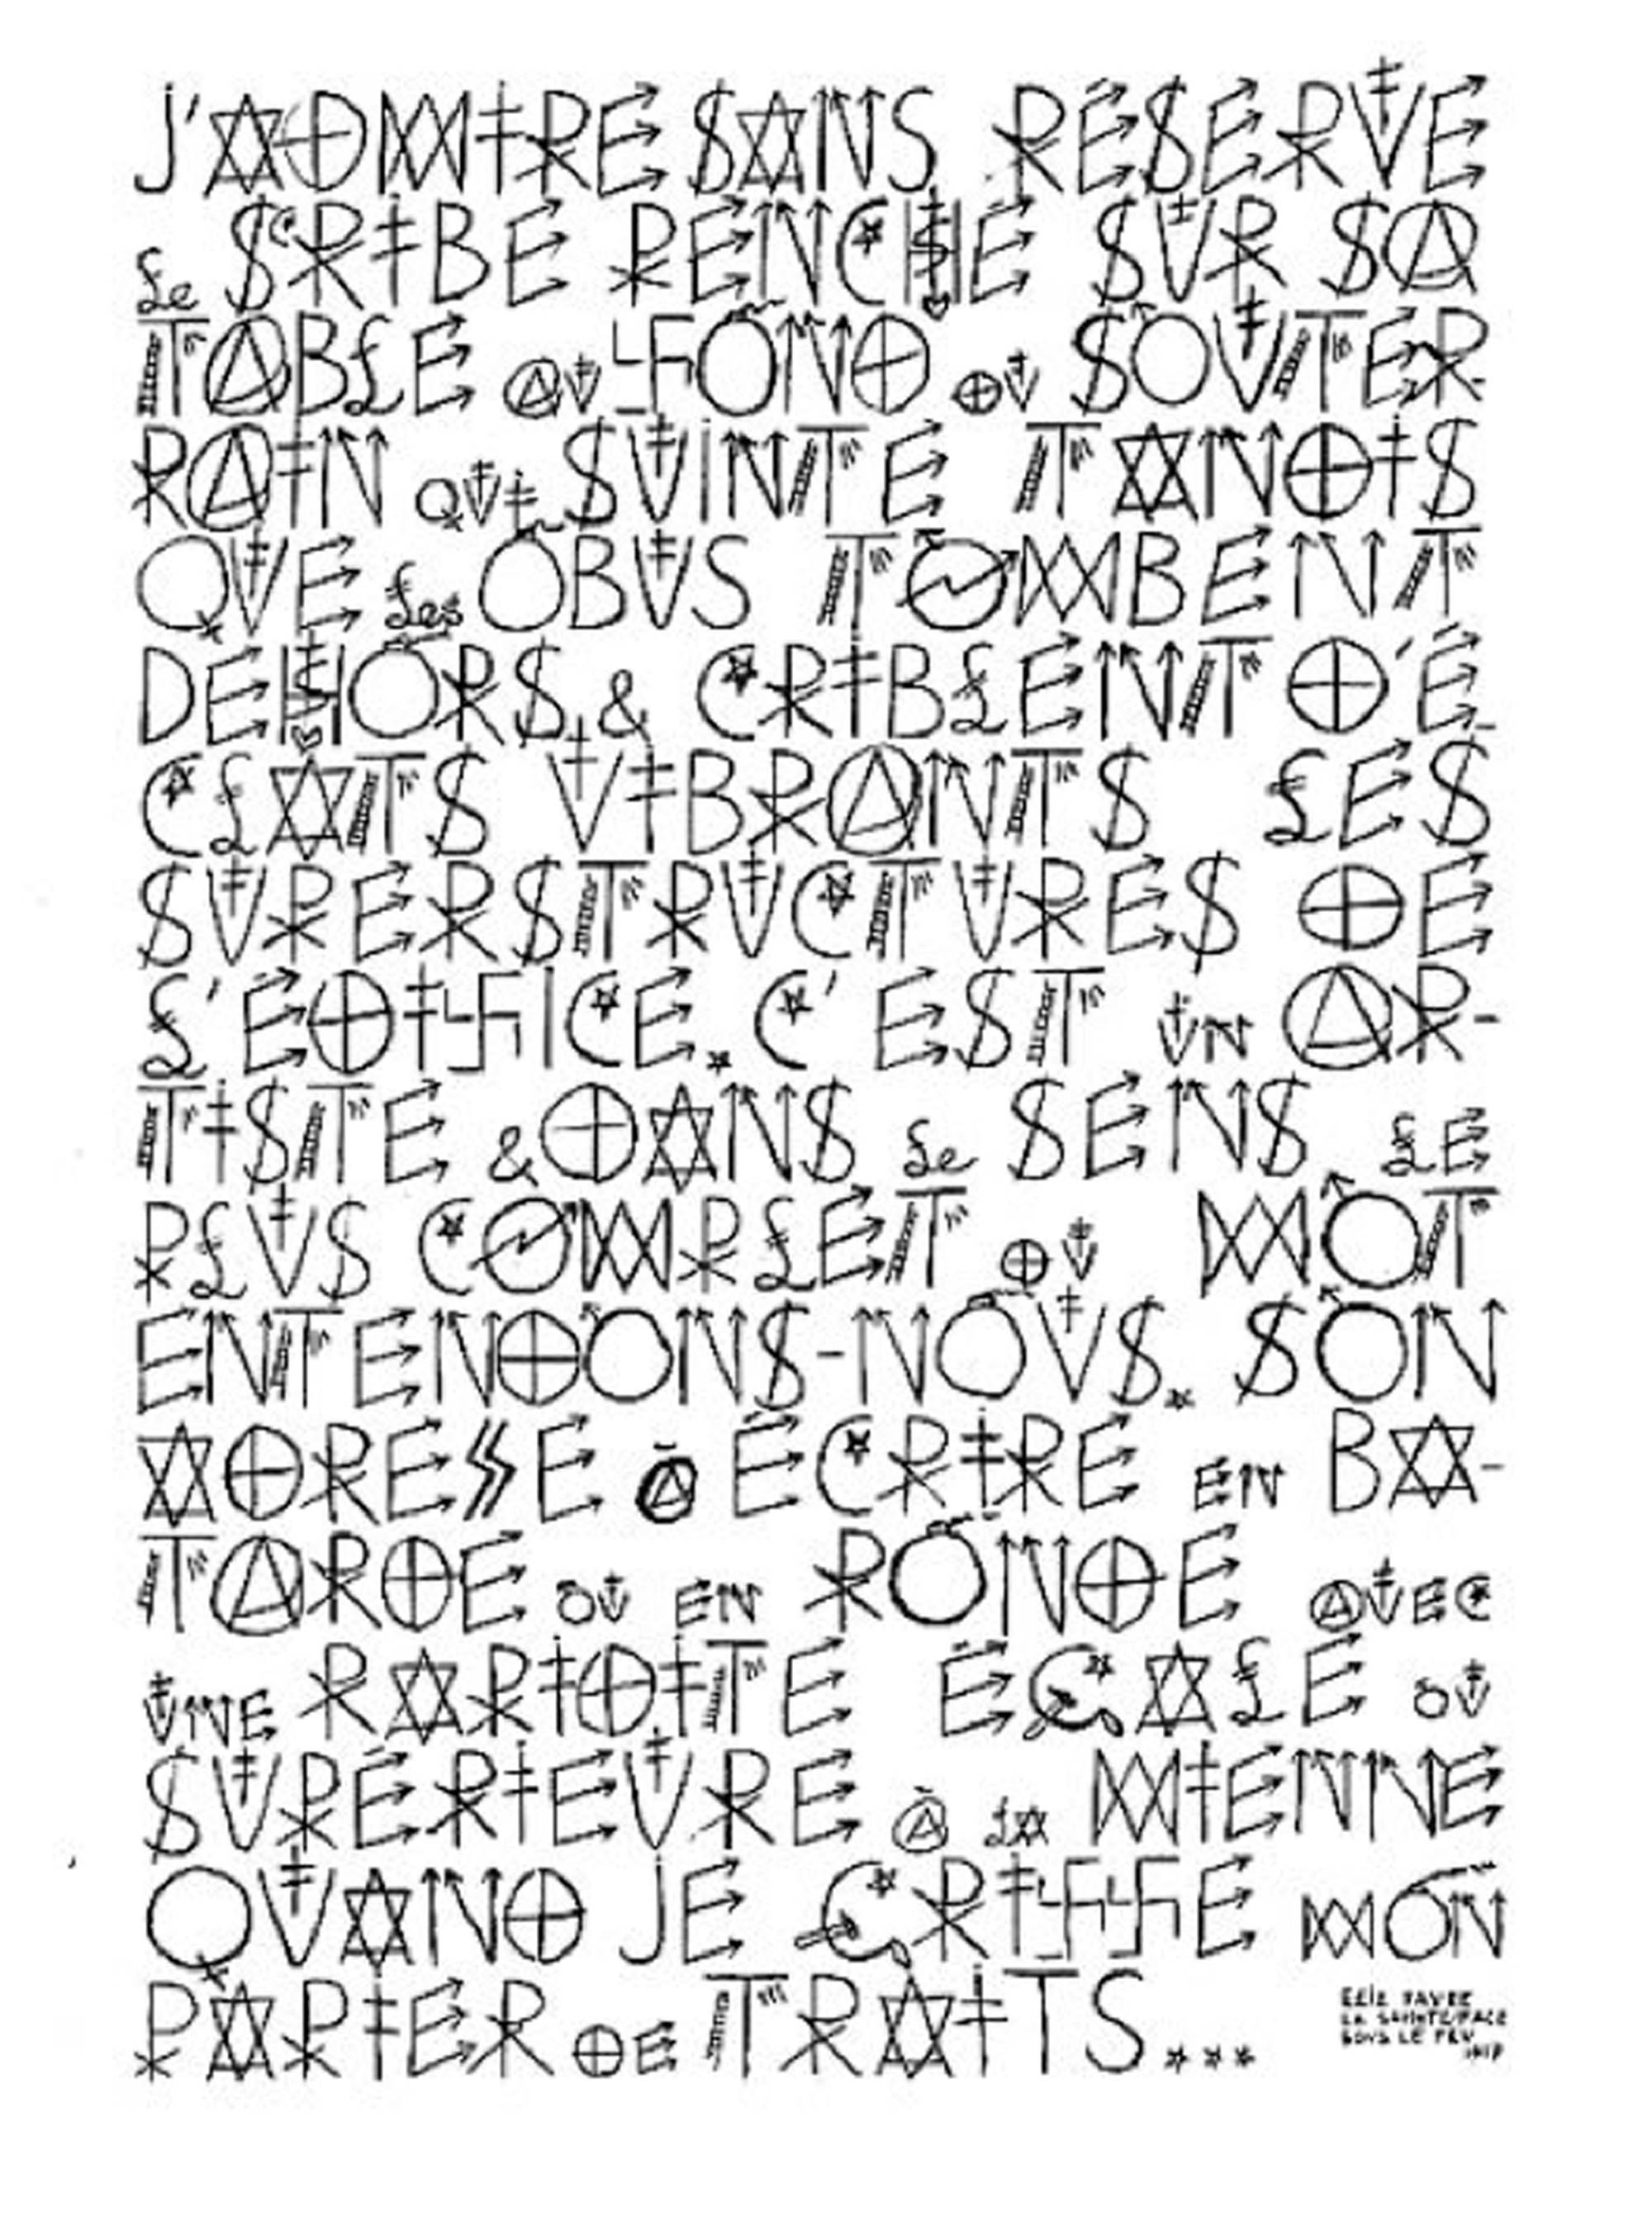 J'ADMIRE SANS RÉSERVE
le SCRIBE PENCHÉ SUR SA
TABLE AU FOND DU SOUTER-
RAIN QUI SUINTE TANDIS
QUE les OBUS TOMBENT
DEHORS & CRIBLENT D'É-
CLATS VIBRANTS LES
SUPERSTRUCTURES DE
L'ÉDIFICE. C'EST UN AR-
TISTE & DANS le SENS LE
PLUS COMPLET DU MOT
ENTENDONS-NOUS. SON
ADRESSE À ÉCRIRE EN BA-
TARDE OU EN RONDE AVEC
UNE RAPIDITE ÉGALE OU
SUPÉRIEURE À LA MIENNE
QUAND JE GRIFFE MON
PAPIER DE TRAITS...
ELIE FAURE
LA SAINTE FACE
SOUS LE FEU